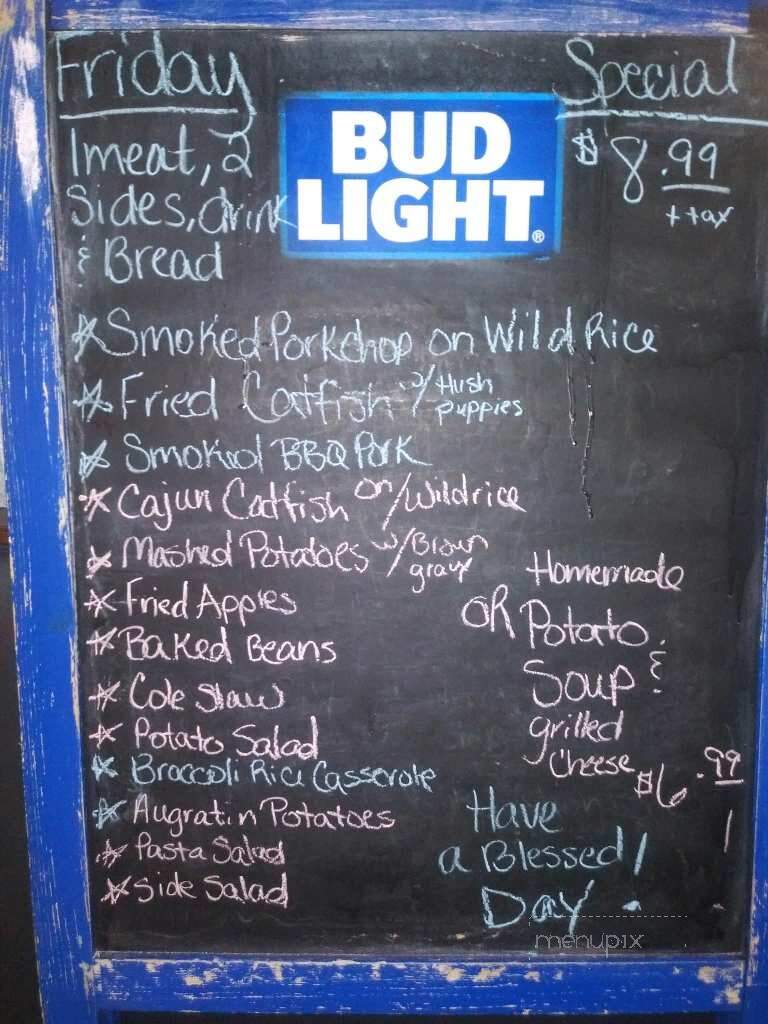 Friday
Special
BUD
LIGHT
®
1 meat, 2
Sides, drink
& Bread
$8.99
+ tax
Smoked Porkchop on Wild Rice
Fried Catfish w/ Hush
puppies
Smoked BBQ Pork
Cajun Catfish on/Wildrice
Mashed Potatoes w/Brown
gravy
Fried Apples
Baked Beans
Cole Slaw
Potato Salad
Broccoli Rice Casserole
Augratin Potatoes
Pasta Salad
Side Salad
Homemade
OR Potato
Soup &
grilled
Cheese $6.99
Have
a Blessed
Day!
menupix